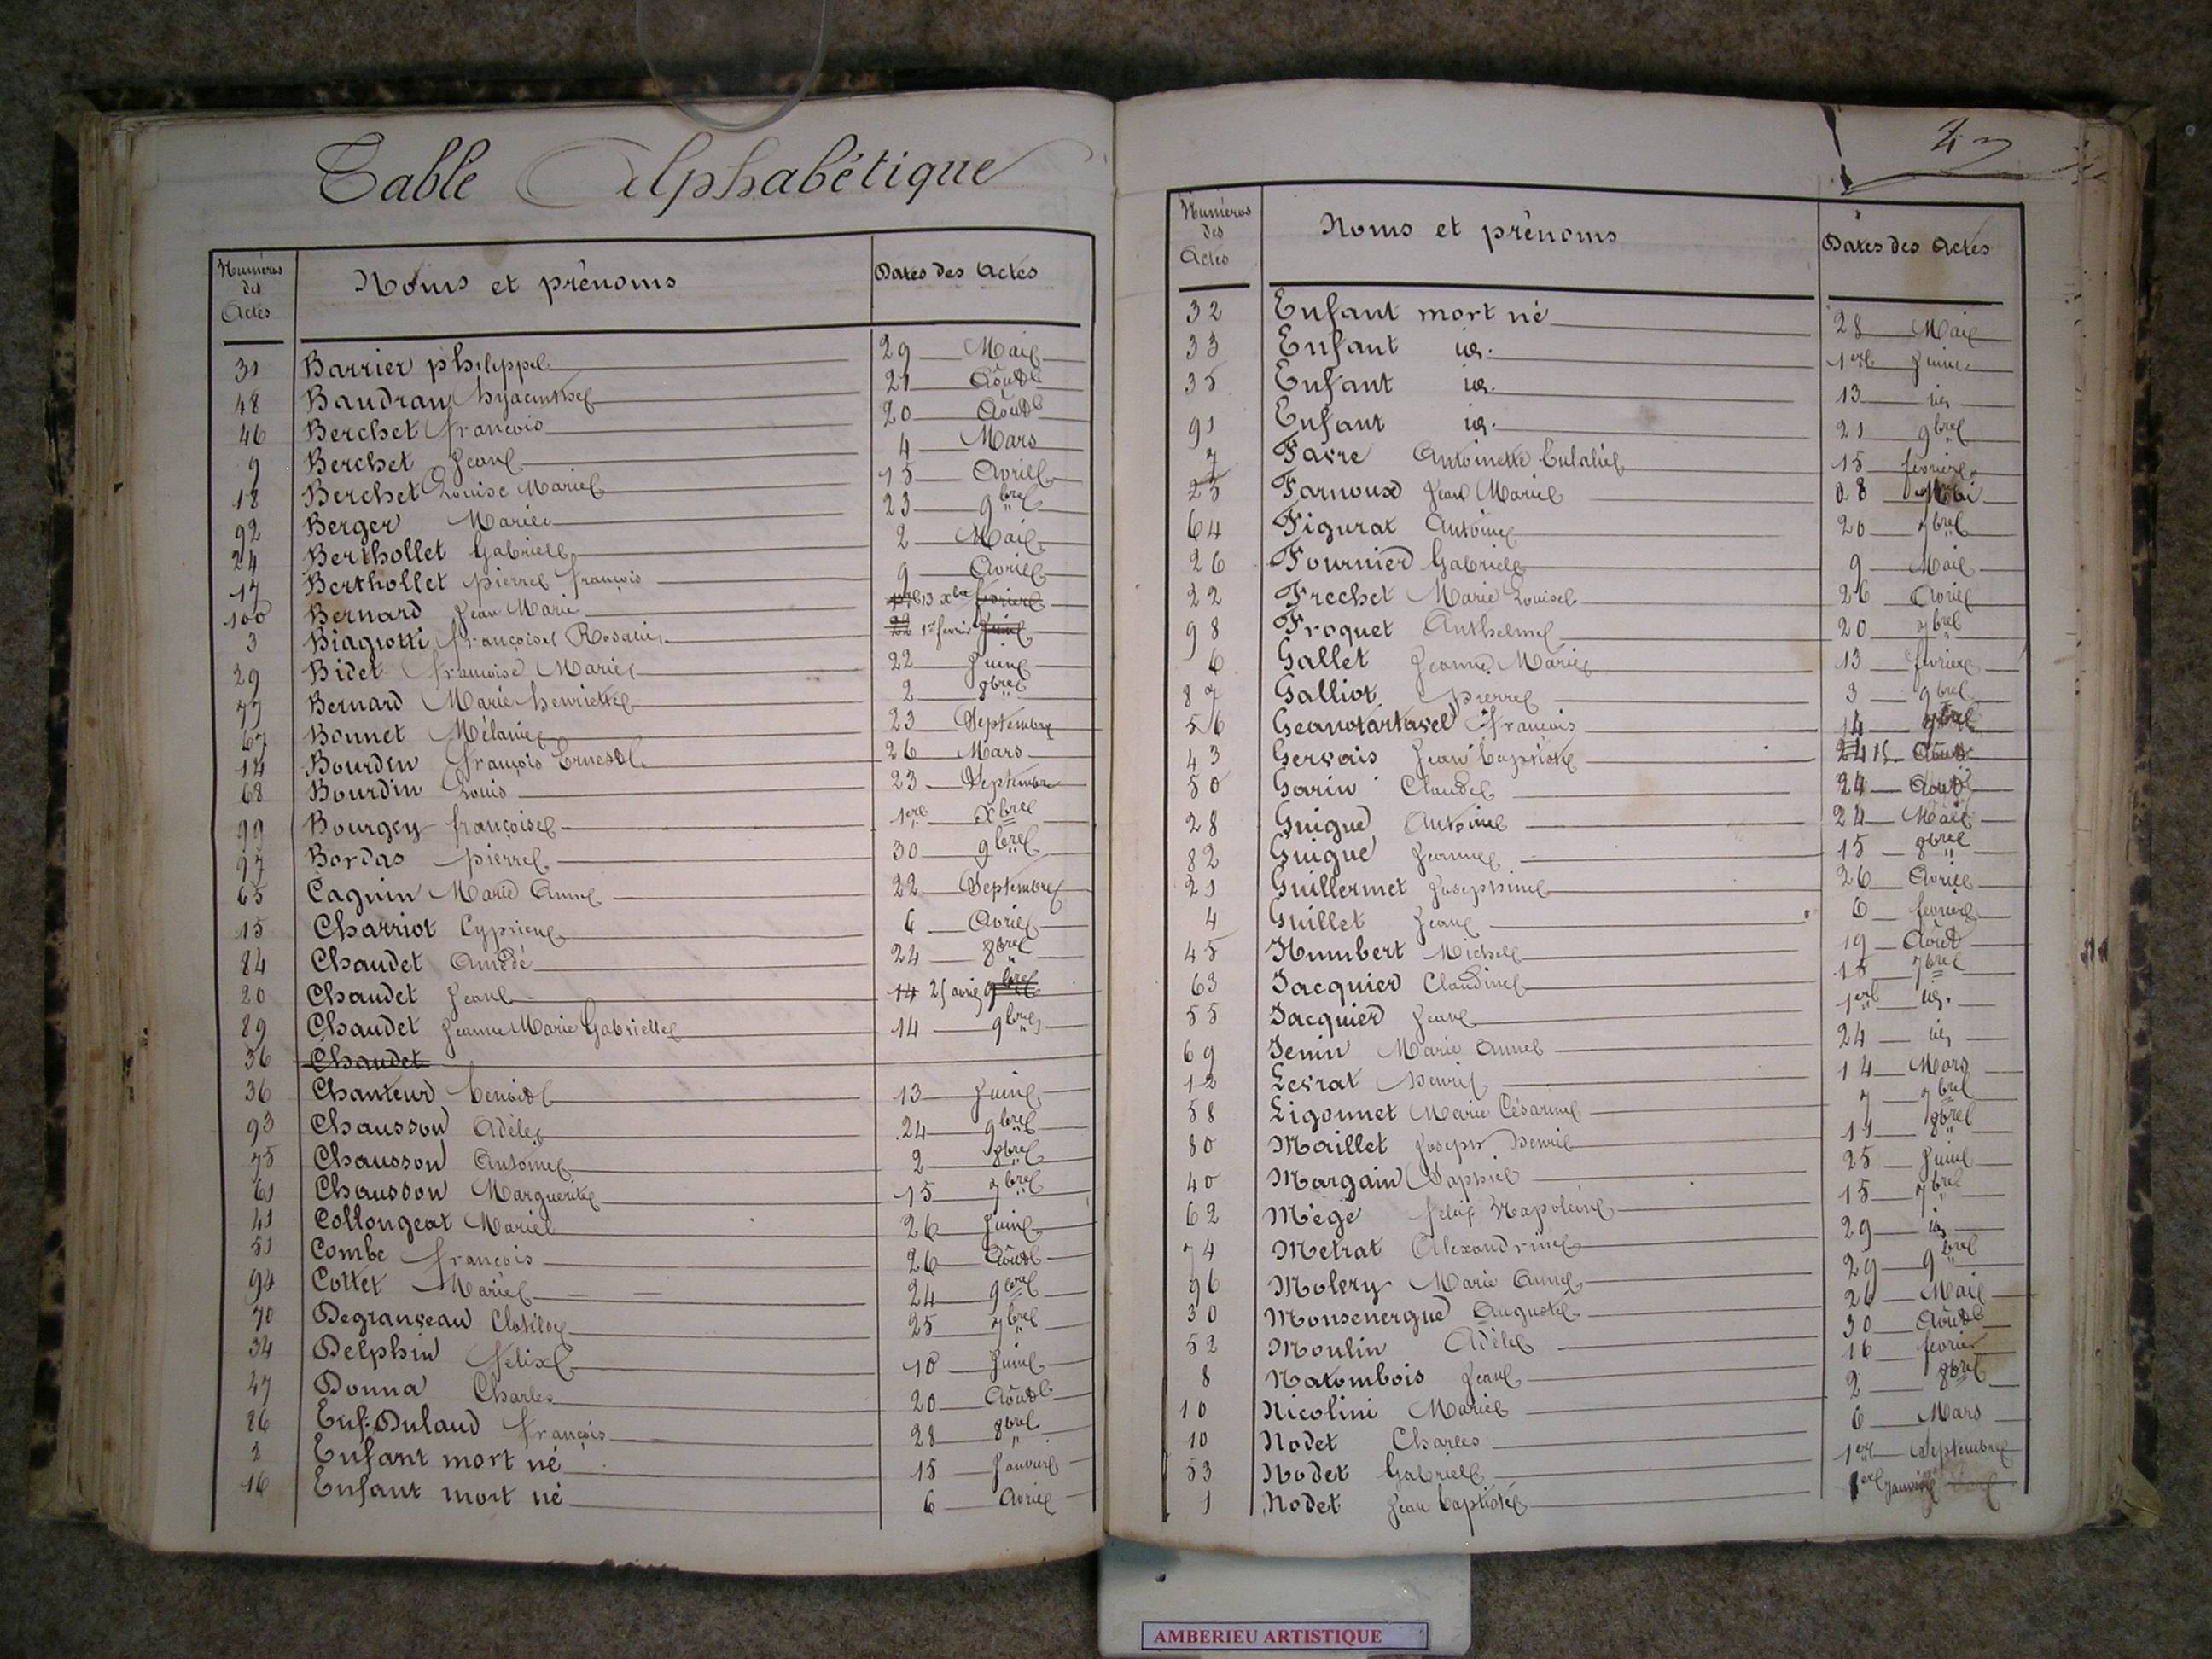 Table Alphabétique
Numéros des Actes Noms et prénoms Dates des Actes
31 Barrier philippe 29 Mai
48 Baudran hyacinthe 21 Août
46 Berchet françois 20 Août
9 Berchet Jean 4 Mars
18 Berchet Louise Marie 15 Avril
92 Berger Marie 23 9bre
24 Berthollet Gabriel 2 Mai
17 Berthollet pierre françois 9 Avril
100 Bernard Jean Marie 13 Xbre fevrier
3 Biagiotti françoise Rosalie 22 1er fevrier Juin
29 Bidet françoise Marie 22 Juin
77 Bernard Marie henriette 2 8bre
67 Bonnet Mélanie 23 Septembre
14 Bourdin françois Ernest 26 Mars
68 Bourdin Louis 23 Septembre
99 Bourgey françoise 1er Xbre
97 Bordas pierre 30 9bre
65 Cagnin Marie Anne 22 Septembre
15 Charriot Cyprien 6 Avril
84 Chaudet Amédé 24 8bre
20 Chaudet Jean 14 25 avril 9bre
89 Chaudet Jeanne Marie Gabrielle 14 9bre
36 Chaudet
36 Chanteur benoit 13 Juin
93 Chausson Adèle 24 9bre
75 Chausson Antoine 2 8bre
61 Chausson Marguerite 15 7bre
41 Collongeat Marie 26 Juin
51 Combe françois 26 Août
94 Cottet Marie 24 9bre
70 Degranveau Clotilde 25 7bre
34 Delphin felix 10 Juin
47 Donna Charles 20 Août
86 Enf: Dulaud françois 28 8bre
2 Enfant mort né 15 Janvier
16 Enfant mort né 6 Avril
Numéros des Actes Noms et prénoms Dates des Actes
32 Enfant mort né 28 Mai
33 Enfant id. 1er Juin
35 Enfant id. 13 id
91 Enfant id. 21 9bre
7 Favre Antoinette Eulalie 15 fevrier
25 Farnoux Jean Marie 8 Mai
64 Figurat Antoine 20 7bre
26 Fournier Gabriel 9 Mai
22 Frechet Marie Louise 26 Avril
98 Froquet Anthelme 20 9bre
6 Gallet Jeanne Marie 13 fevrier
87 Galliot pierre 3 9bre
56 Geanotartavel françois 14 7bre
43 Gervais Jean baptiste 24 15 Août
50 Garin Claude 24 Août
28 Guigue Antoine 24 Mai
82 Guigue Jeanne 15 8bre
21 Guillermet Josephine 26 Avril
4 Guillet Jean 6 fevrier
45 Humbert Michel 19 Août
63 Jacquier Claudine 15 7bre
55 Jacquier Jean 1er id.
69 Jenin Marie Anne 24 id
12 Levrat henri 14 Mars
58 Ligonnet Marie Césarine 7 7bre
80 Maillet Joseph henri 11 8bre
40 Margain Sophie 25 Juin
62 Mégé felix Napoléon 15 7bre
74 Metrat Alexandrine 29 id
96 Molery Marie Anne 29 9bre
30 Monsenergue Auguste 26 Mai
52 Moulin Adèle 30 Août
8 Natombois Jean 16 fevrier
10 Nicolini Marie 2 8bre
10 Nodet Charles 6 Mars
53 Nodet Gabriel 1er Septembre
1 Nodet Jean baptiste 1er Janvier
AMBERIEU ARTISTIQUE